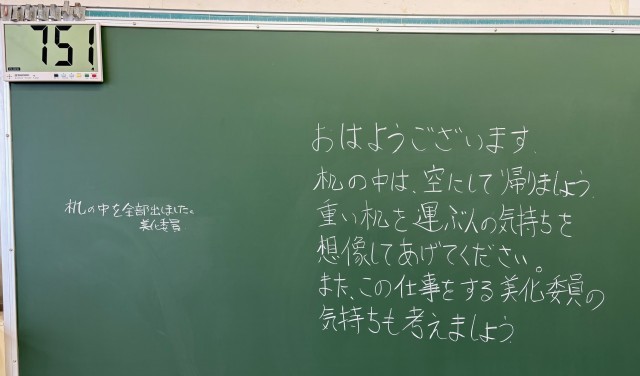 751
机の中を全部出しました。
美化委員
おはようございます.
机の中は、空にして帰りましょう.
重い机を運ぶ人の気持ちを
想像してあげてください。
また、この仕事をする美化委員の
気持ちも考えましょう